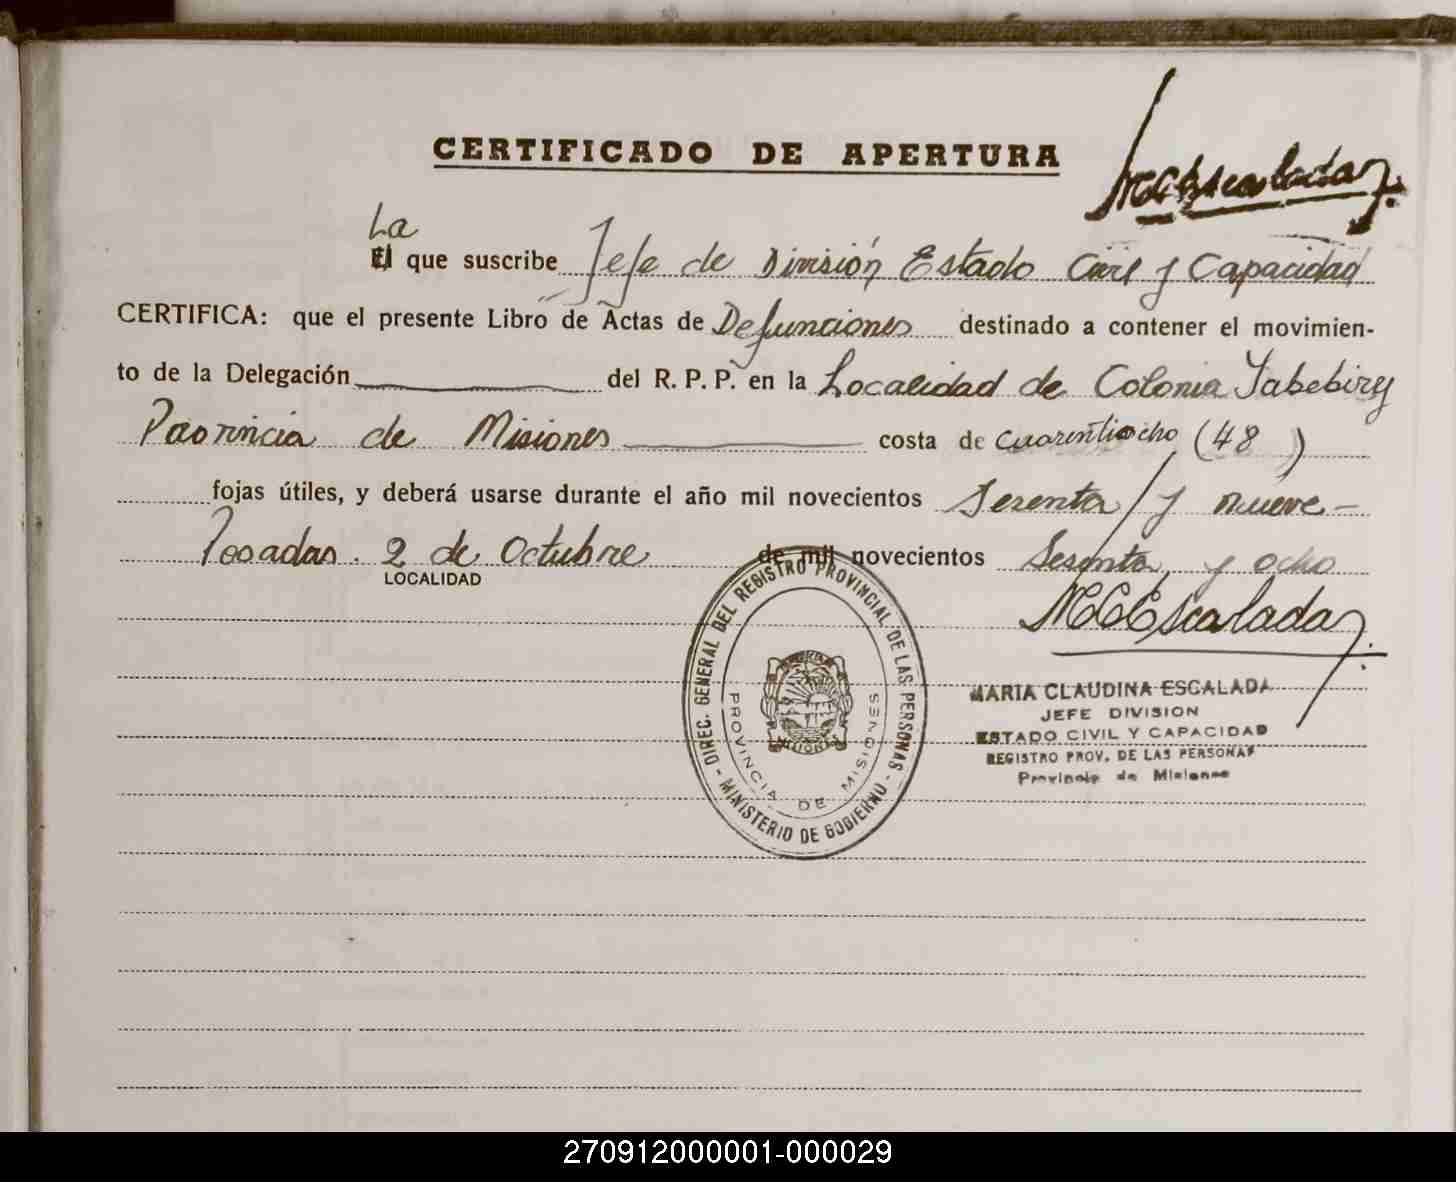 CERTIFICADO DE APERTURA
MCEscalada
La
El que suscribe Jefe de División Estado Civil y Capacidad
CERTIFICA: que el presente Libro de Actas de Defunciones destinado a contener el movimien-
to de la Delegación del R. P. P. en la Localidad de Colonia Yabebiry
Provincia de Misiones costa de cuarentiocho (48)
fojas útiles, y deberá usarse durante el año mil novecientos Sesenta y nueve-
Posadas. 2 de Octubre de mil novecientos Sesenta y ocho
LOCALIDAD
MCEscalada
DIREC. GENERAL DEL REGISTRO PROVINCIAL DE LAS PERSONAS - MINISTERIO DE GOBIERNO -
PROVINCIA DE MISIONES
MISIONES
MARIA CLAUDINA ESCALADA
JEFE DIVISION
ESTADO CIVIL Y CAPACIDAD
REGISTRO PROV. DE LAS PERSONAS
Provincia de Misiones
270912000001-000029